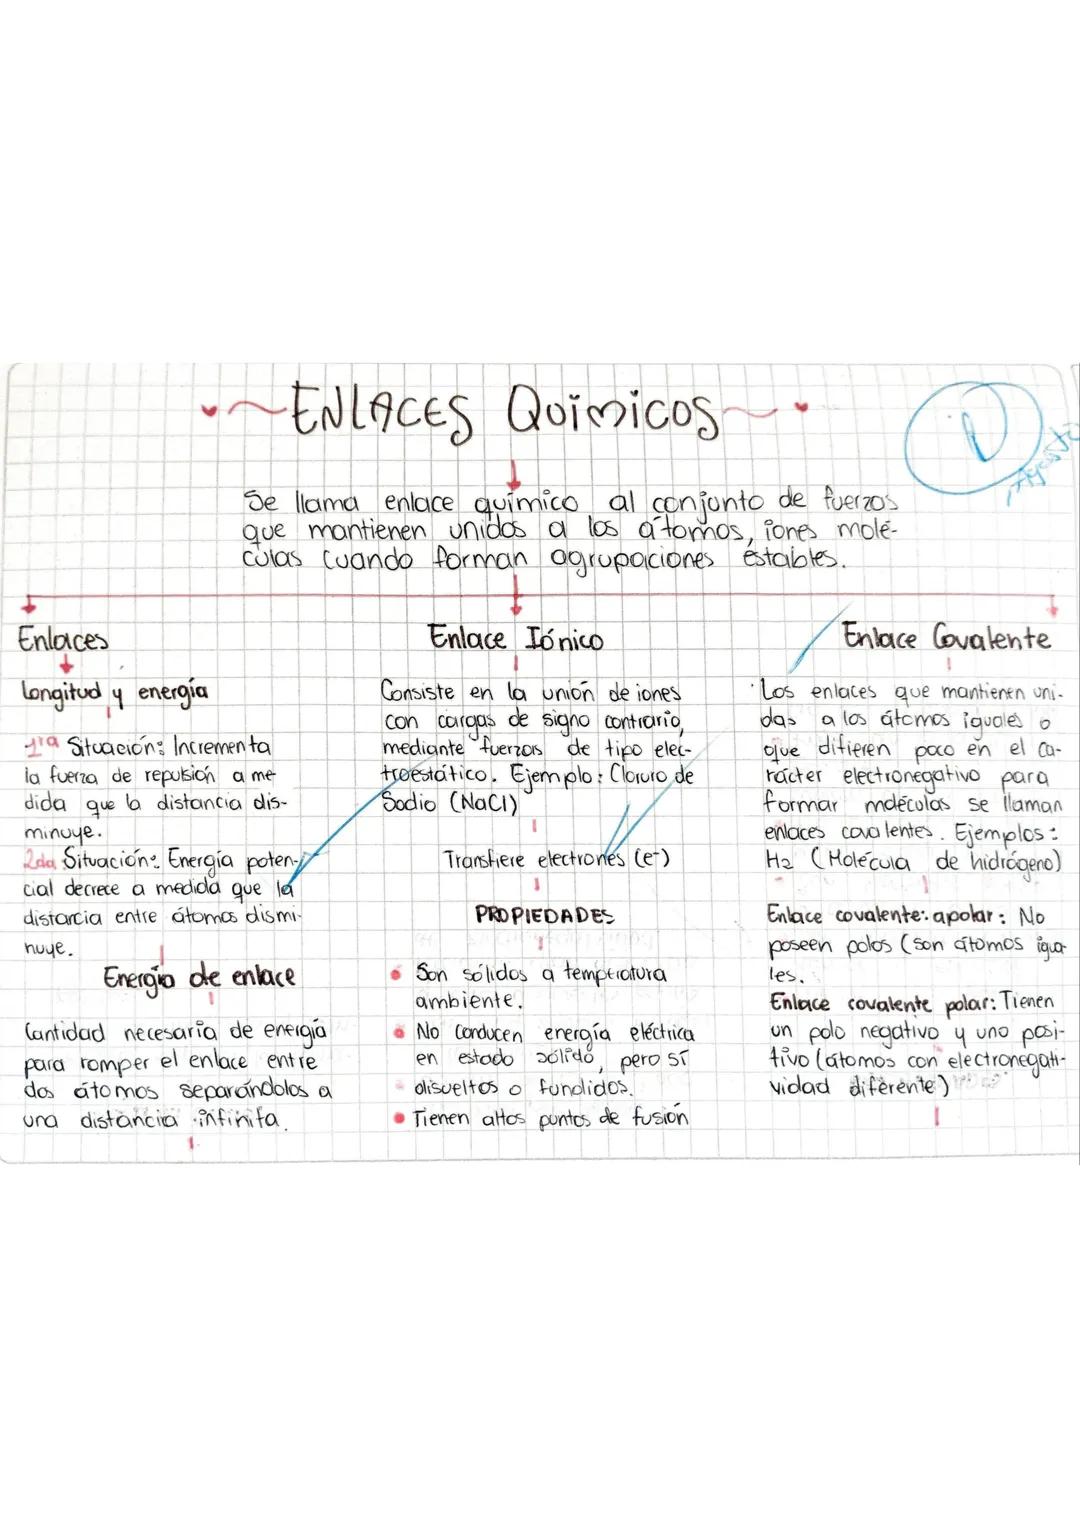 ENLACES QUÍMICOS
Se llama enlace químico al conjunto de fuerzas
que mantienen unidos a los átomos, iones molé-
culas cuando forman agrupaciones estables.
Enlaces
Longitud y energía
1ra Situación: Incrementa
la fuerza de repulsión a me
dida que la distancia dis-
minuye.
2da Situación: Energía poten-
cial decrece a medida que la
distancia entre átomos dismi-
nuye.
Energía de enlace
Cantidad necesaria de energía
para romper el enlace entre
dos átomos separándolos a
una distancia infinita.
Enlace Iónico
Consiste en la unión de iones
con cargas de signo contrario,
mediante fuerzas de tipo elec-
troestático. Ejemplo: Cloruro de
Sodio (NaCl)
Transfiere electrones (e-)
PROPIEDADES
Son sólidos a temperatura
ambiente.
No conducen energía eléctrica
en estado sólido, pero sí
disueltos o fundidos.
Tienen altos puntos de fusión
Enlace Covalente
Los enlaces que mantienen uni-
das a los átomos iguales o
que difieren poco en el ca-
rácter electronegativo para
formar moléculas se llaman
enlaces covalentes. Ejemplos:
H2 (Molécula de hidrógeno)
Enlace covalente: apolar: No
poseen polos (son átomos igua
les.
Enlace covalente polar: Tienen
un polo negativo y uno posi-
tivo (átomos con electronegati-
vidad diferente)